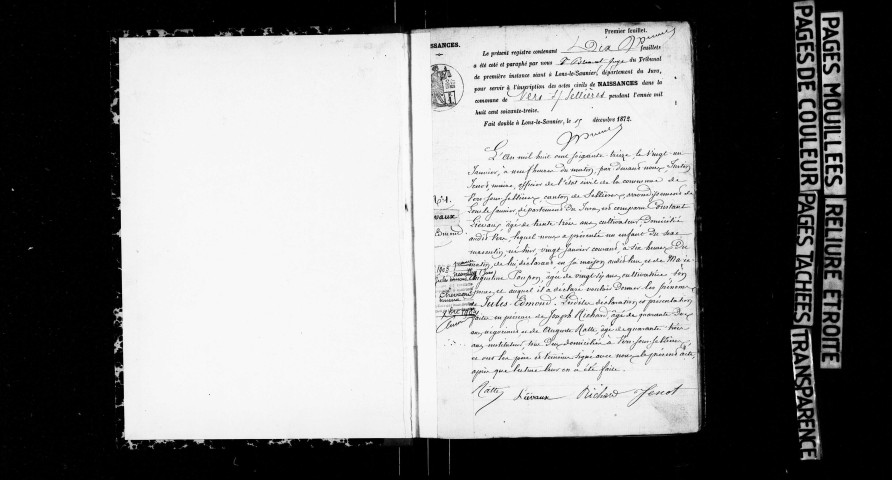 Premier feuillet.
SSANCES.
Le présent registre contenant Dix feuillets
a été coté et paraphé par nous Juge du Tribunal
de première instance séant à Lons-le-Saunier, département du Jura,
pour servir à l'inscription des actes civils de NAISSANCES dans la
commune de Vers s/ Sellières pendant l'année mil
huit cent soixante-treize.
Fait double à Lons-le-Saunier, le 15 décembre 1872.
L'an mil huit cent soixante treize le vingt un
Janvier, à neuf heures du matin, par devant nous Justin
Jenot, maire, officier de l'état civil de la commune de
Vers sous Sellières, canton de Sellières, arrondissement de
Lons le Saunier, département du Jura, est comparu Constant
Liévaux, âgé de trente trois ans, cultivateur, domicilié
audit Vers, lequel nous a présenté un enfant du sexe
masculin né hier, vingt Janvier courant, à six heures du
matin, de lui déclarant en sa maison audit lieu et de Marie
Augustine âgée de vingt ans, cultivatrice son
épouse, et auquel il a déclaré vouloir donner les prénoms
de Jules Edmond. Lesdites déclaration et présentation
faites en présence de Joseph Richard, âgé de quarante deux
ans, négociant et de Auguste Ratte, âgé de quarante trois
ans, instituteur, tous deux domiciliés à Vers sous Sellières,
et ont les père et témoins signé avec nous le présent acte
après que lecture leur en a été faite.
Ratte Liévaux Richard Jenot
N° 1.
vaux
Edmond.
PAGES MOUILLEES RELIURE ETROITE
PAGES DE COULEUR PAGES TACHEES TRANSPARENCE